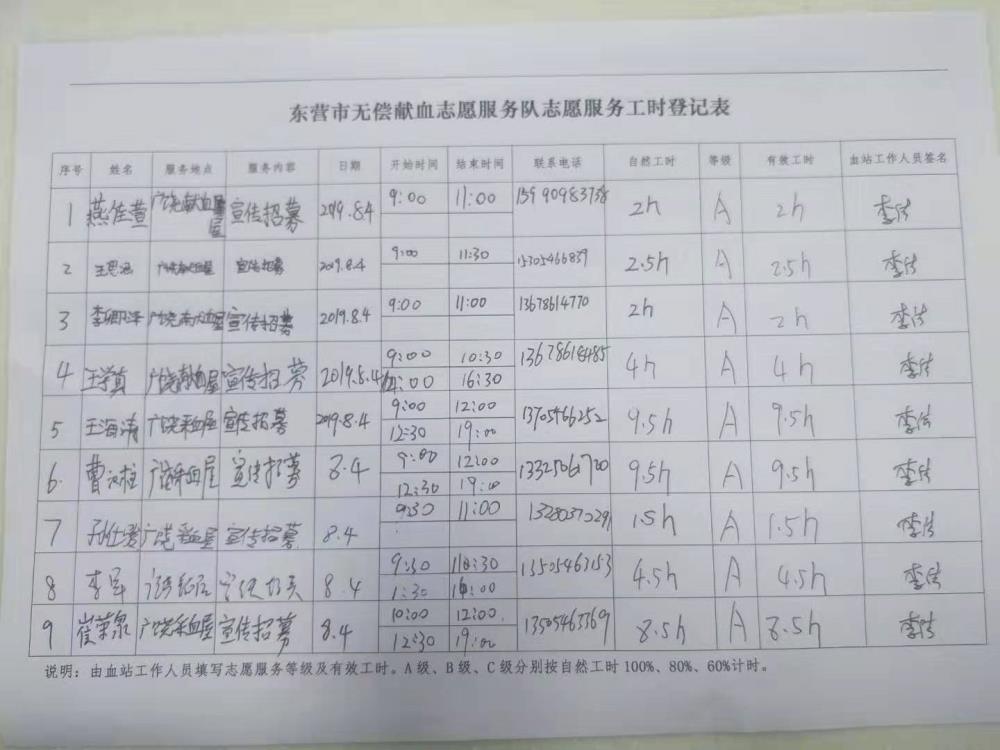 东营市无偿献血志愿服务队志愿服务工时登记表
序号 姓名 服务地点 服务内容 日期 开始时间 结束时间 联系电话 自然工时 等级 有效工时 血站工作人员签名
1 燕佳萱 广饶献血屋 宣传招募 2019.8.4 9:00 11:00 15990983738 2h A 2h 李洁
2 王思涵 广饶献血屋 宣传招募 2019.8.4 9:00 11:30 15305466839 2.5h A 2.5h 李洁
3 李卿泽 广饶献血屋 宣传招募 2019.8.4 9:00 11:00 13678614770 2h A 2h 李洁
4 王学真 广饶献血屋 宣传招募 2019.8.4 9:00 10:30 13678618485 4h A 4h 李洁
14:00 16:30
5 王海涛 广饶采血屋 宣传招募 2019.8.4 9:00 12:00 13705466252 9.5h A 9.5h 李洁
12:30 19:00
6 曹 广饶采血屋 宣传招募 8.4 9:00 12:00 13325061700 9.5h A 9.5h 李洁
12:30 19:00
7 广饶采血屋 宣传招募 8.4 9:30 11:00 13280370291 1.5h A 1.5h 李洁
8 李军 8.4 9:30 13505463153 4.5h A 4.5h 李洁
1:30
9 崔荣泉 广饶采血屋 宣传招募 8.4 10:00 12:00 13505463769 8.5h A 8.5h 李洁
12:30 19:00
说明：由血站工作人员填写志愿服务等级及有效工时。A级、B级、C级分别按自然工时100%、80%、60%计时。